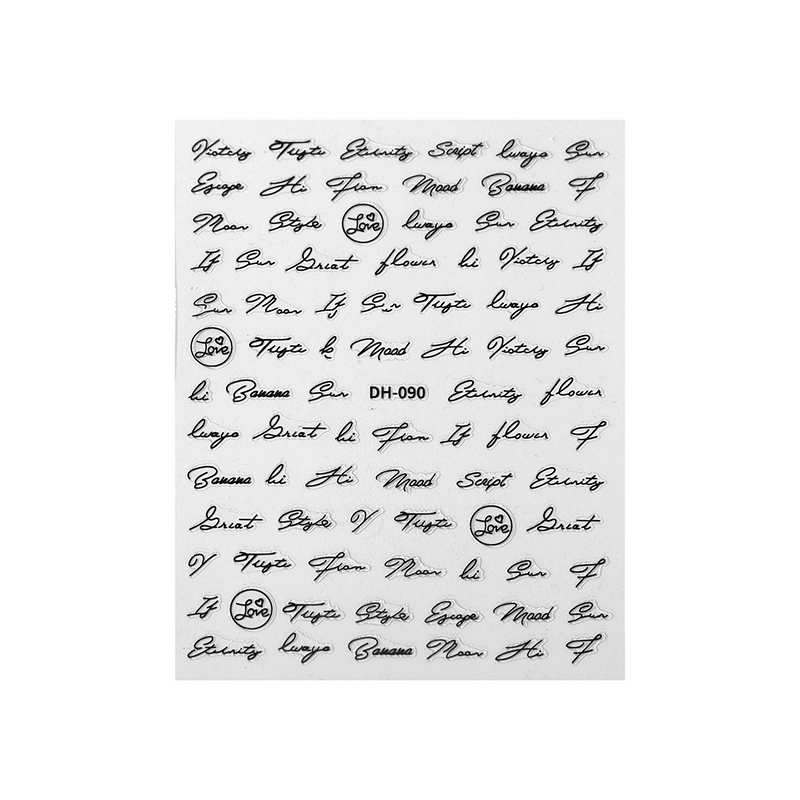 Victory Tufti Eternity Script lways Sun
Escape Hi Fian Mood Banana F
Moon Style Love lways Sun Eternity
If Sun Great flower hi Victory If
Sun Moon If Sun Tufti lways Hi
Love Tufti k Mood Hi Victory Sun
hi Banana Sun DH-090 Eternity flower
lways Great hi Fian If flower F
Banana hi Hi Mood Script Eternity
Great Style V Tufti Love Great
V Tufti Fian Moon hi Sun F
If Love Tufti Style Escape Mood Sun
Eternity lways Banana Moon Hi F